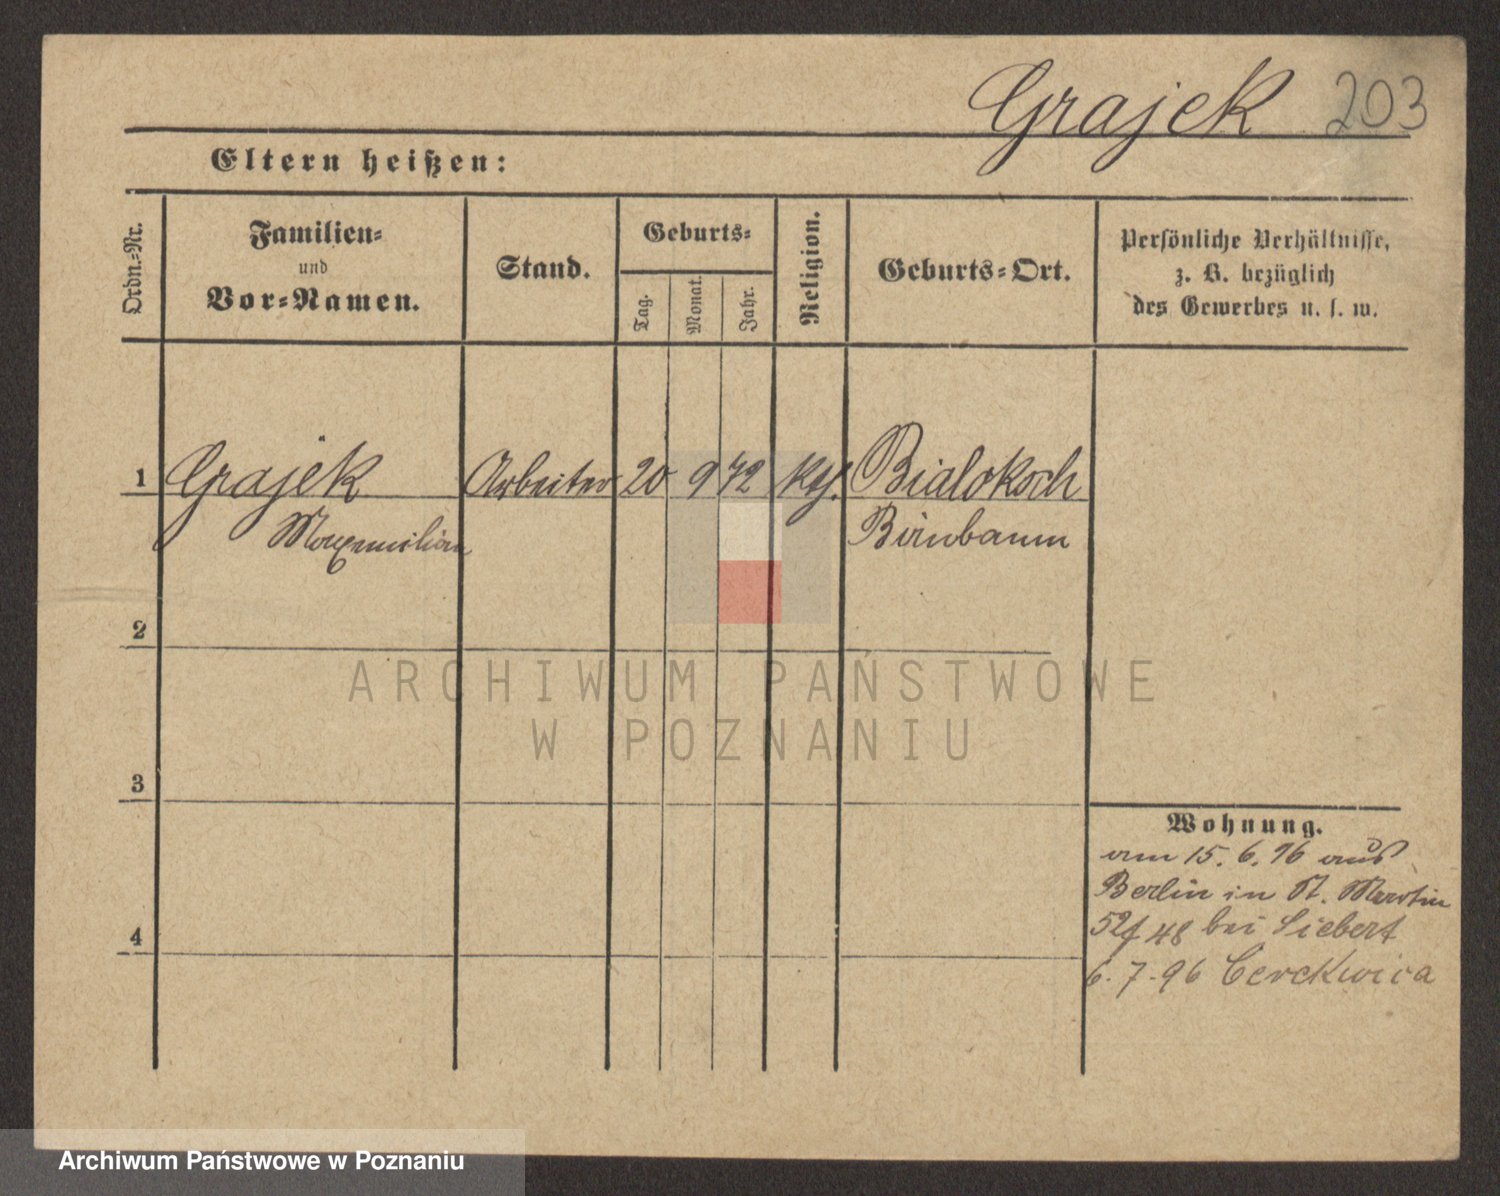 Grajek 203
Eltern heißen:
Ordn.-Nr.
Familien-
und
Vor-Namen.
Stand.
Geburts-
Tag.
Monat.
Jahr.
Religion.
Geburts-Ort.
Persönliche Verhältnisse,
z. B. bezüglich
des Gewerbes u. s. w.
1 Grajek Arbeiter 20 9 72 kth. Bialokosch
Maxemilian Birnbaum
2
3
4
Wohnung.
am 15. 6. 96 aus
Berlin in St. Martin
52/48 bei Siebert
6. 7. 96 Cerekwica
ARCHIWUM PAŃSTWOWE
W POZNANIU
Archiwum Państwowe w Poznaniu